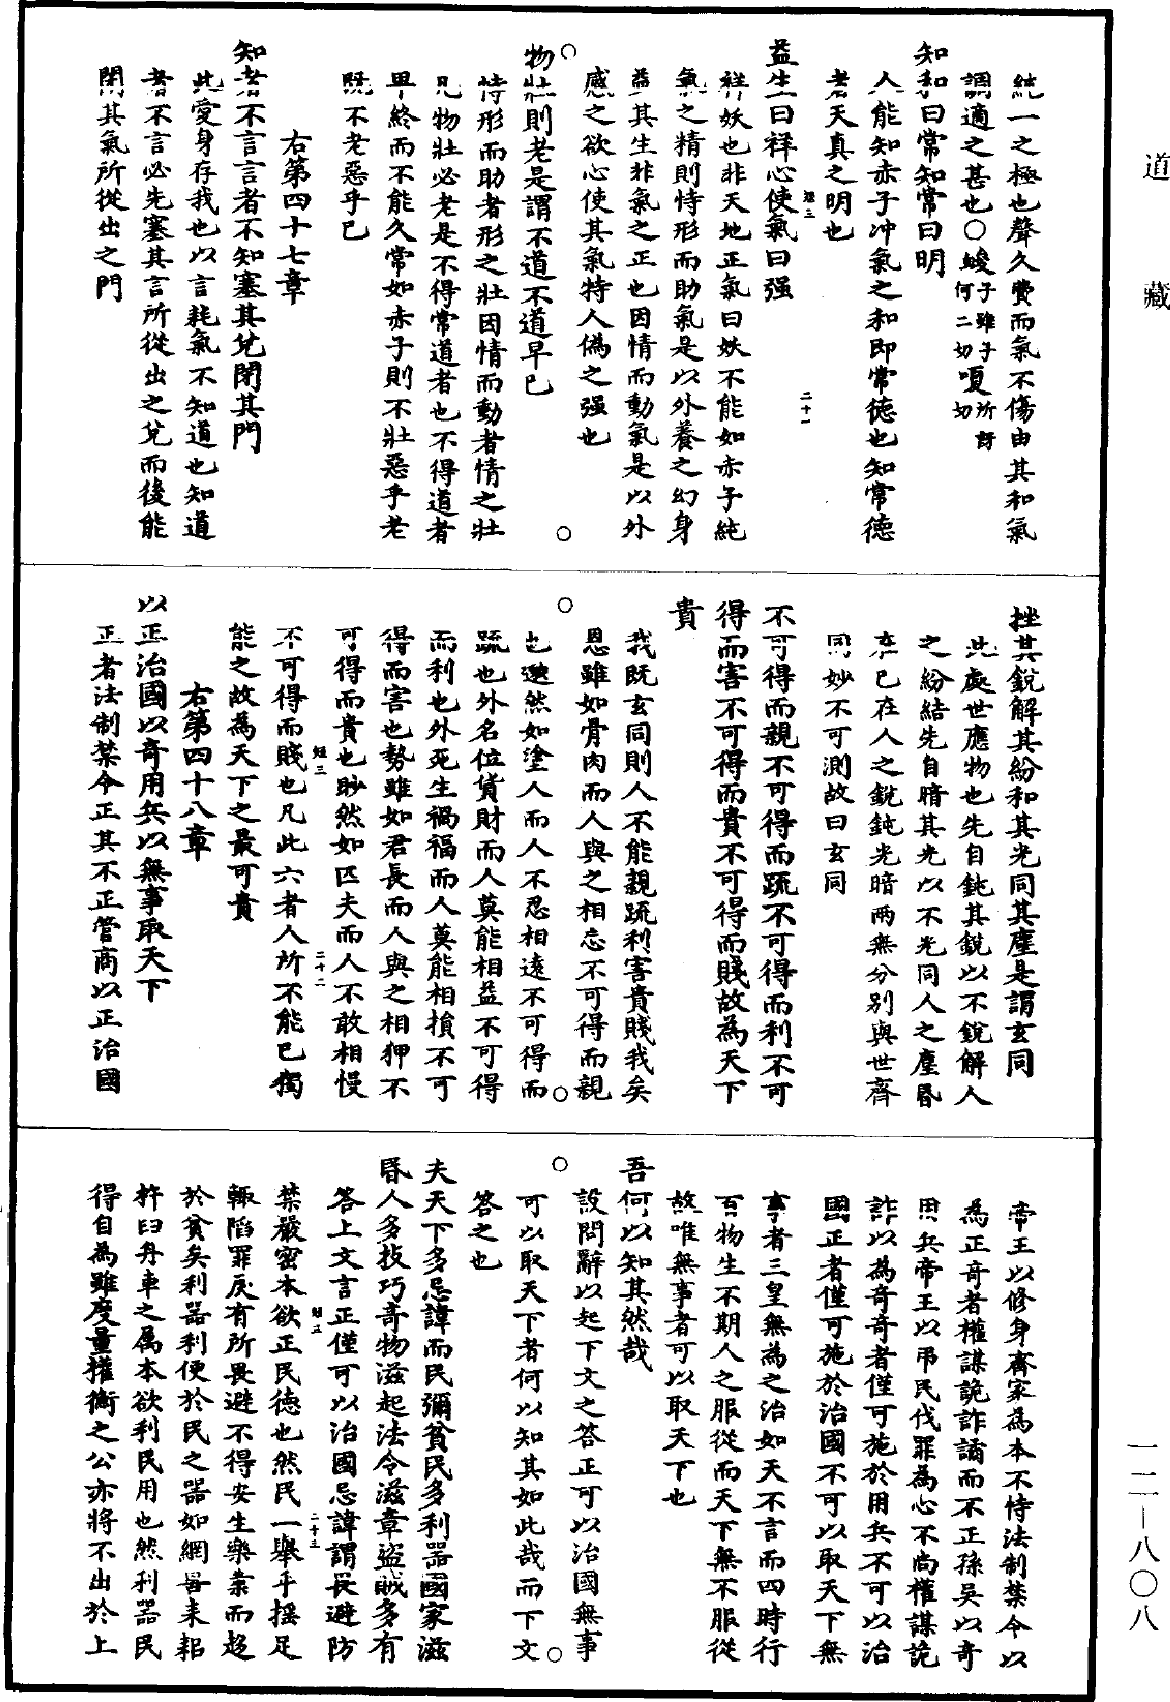 道藏
純一之極也聲久費而氣不傷由其和氣
調適之甚也○峻子雖子何二切嗄所訝切
知和曰常知常曰明
人能知赤子沖氣之和即常德也知常德
者天真之明也
益生曰祥心使氣曰强
祥妖也非天地正氣曰妖不能如赤子純
氣之精則恃形而助氣是以外養之幻身
益其生非氣之正也因情而動氣是以外
感之欲心使其氣特人僞之强也
物壯則老是謂不道不道早已
恃形而助者形之壯因情而動者情之壯
凡物壯必老是不得常道者也不得道者
早終而不能久常如赤子則不壯惡乎老
既不老惡乎已
右第四十七章
知者不言言者不知塞其兌閉其門
此愛身存我也以言耗氣不知道也知道
者不言必先塞其言所從出之兌而後能
閉其氣所從出之門
挫其銳解其紛和其光同其塵是謂玄同
此處世應物也先自鈍其銳以不銳解人
之紛結先自暗其光以不光同人之塵昏
在己在人之銳鈍光暗兩無分別與世齊
同妙不可測故曰玄同
不可得而親不可得而踈不可得而利不可
得而害不可得而貴不可得而賤故為天下
貴
我既玄同則人不能親踈利害貴賤我矣
恩雖如骨肉而人與之相忘不可得而親
也邈然如塗人而人不忍相遠不可得而
踈也外名位貨財而人莫能相益不可得
而利也外死生禍福而人莫能相損不可
得而害也勢雖如君長而人與之相狎不
可得而貴也眇然如匹夫而人不敢相慢
不可得而賤也凡此六者人所不能已獨
能之故為天下之最可貴
右第四十八章
以正治國以奇用兵以無事取天下
正者法制禁令正其不正管商以正治國
帝王以修身齊家為本不恃法制禁令以
為正奇者權謀詭詐譎而不正孫吳以奇
用兵帝王以弔民伐罪為心不尚權謀詭
詐以為奇奇者僅可施於用兵不可以治
國正者僅可施於治國不可以取天下無
事者三皇無為之治如天不言而四時行
百物生不期人之服從而天下無不服從
故唯無事者可以取天下也
吾何以知其然哉
設問辭以起下文之答正可以治國無事
可以取天下者何以知其如此哉而下文
答之也
夫天下多忌諱而民彌貧民多利器國家滋
昏人多技巧奇物滋起法令滋章盜賊多有
答上文言正僅可以治國忌諱謂畏避防
禁嚴密本欲正民德也然民一舉手搖足
輒陷罪戾有所畏避不得安生樂業而趨
於貧矣利器利便於民之器如網罟耒耜
杵臼舟車之属本欲利民用也然利器民
得自為雖度量權衡之公亦將不出於上
一二—八〇八